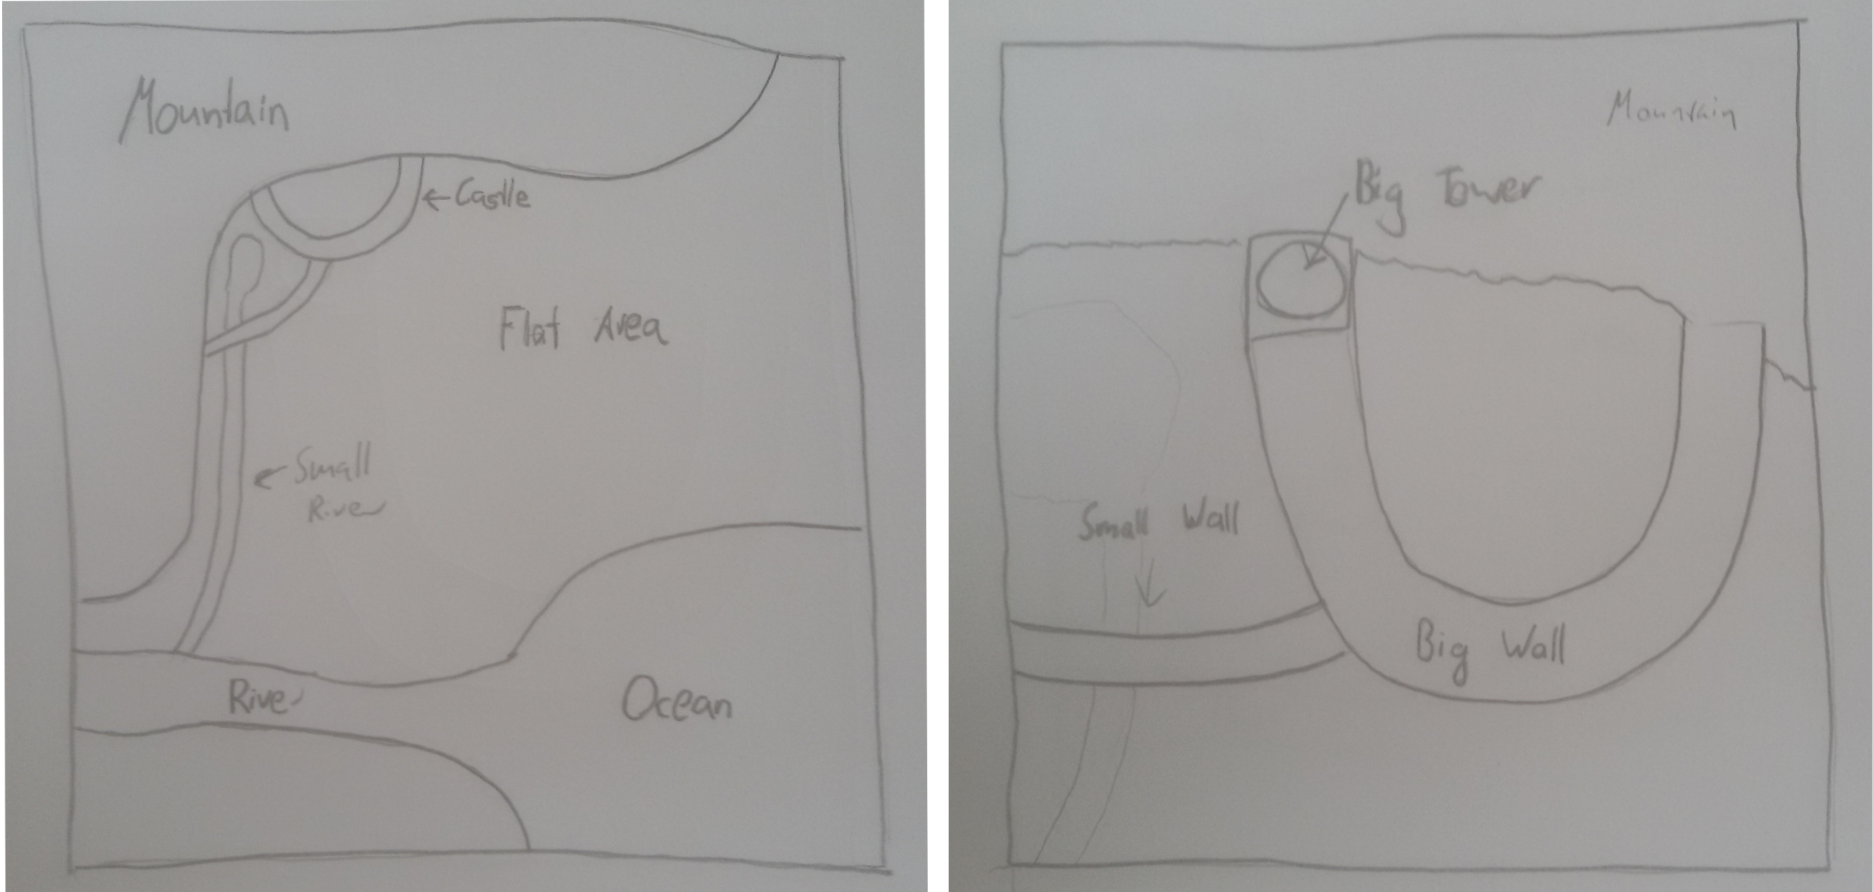 Mountain
← Castle
Flat Area
← Small
River
River
Ocean
Mountain
Big Tower
Small Wall
Big Wall